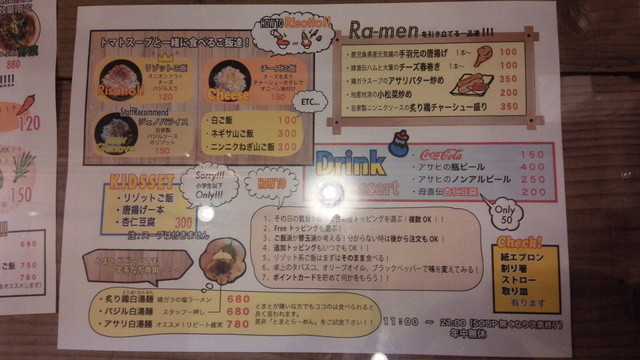 880
120
150
690
730
750
HOW TO Risotto!!
トマトスープと一緒に食べるご飯達！
リゾットの飯
オニオンフライ
チーズ
バジル入り
120
Risotto!!
チーズの飯
チーズを炙り
チャーシューのタレで
すこーし味付け
150
Cheese
StaffRecommend
ジェノバライス
自家製
バジルソースの
リゾット
150
ETC...
・白ご飯 100
・ネギサ山ご飯 300
・ニンニクねぎ山ご飯 300
Ra-men を引き立てる一品達!!
・鹿児島県産元気鶏の手羽元の唐揚げ 1本〜 100
・糖直伝ハムと大葉のチーズ春巻き 1本〜 100
・鶏ガラスープのアサリバター炒め 350
・地産地消の小松菜炒め 200
・自家製ニンニクソースの炙り鶏チャーシュー盛り 350
Drink
Dessert
・Coca-Cola 150
・アサヒの瓶ビール 400
・アサヒのノンアルビール 250
・母直伝杏仁豆腐 200
Only
50
KIDSSET
Sorry!!!
小学生以下
Only!!!
・リゾットご飯
・唐揚げ一本
・杏仁豆腐 300
注:スープは付きません
HOW TO
1、その日の気分で トッピングを選ぶ！複数OK!!
2、Freeトッピングも選ぶ！
3、ご飯派が替玉派か考える！分からない時は後から注文もOK!
4、追加トッピングもいつでもOK!!
5、リゾット系ご飯はまずはそのまま食べる！
6、卓上のタバスコ、オリーブオイル、ブラックペッパーで味を変えてみる！
7、ポイントカードを貯めて何かをもらう！！
Check!
紙エプロン
割り箸
ストロー
取り皿
有ります
・炙り鶏白湯麺 鶏ガラの塩ラーメン 680
・バジル白湯麺 スタッフ一押し 680
・アサリ白湯麺 オススメ！リピート確実 780
とまとが嫌いな方でもココのは食べられると
良く言われます。
是非「とまとらーめん」をご賞下さい!!
11:00 〜 23:00 (SOUP無くなり次第終了)
年中無休